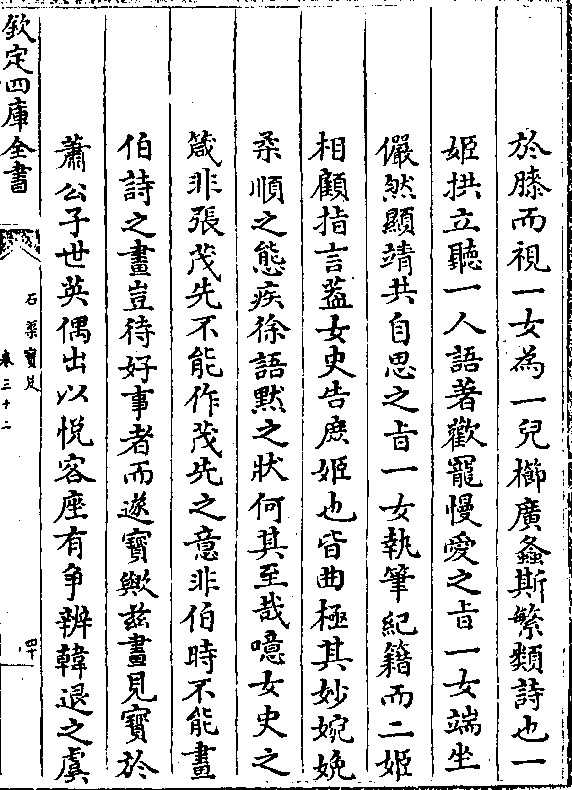 於膝而視一女為一兒櫛廣螽斯繁類詩也一
姬拱立聽一人語著歡寵慢愛之㫖一女端坐
儼然顯靖共自思之㫖一女執筆紀籍而二姬
相顧指言葢女史告庶姬也皆曲極其妙婉娩
柔順之態疾徐語黙之狀何其至哉噫女史之
箴非張茂先不能作茂先之意非伯時不能畫
伯詩之畫豈待好事者而遂寶歟兹畫見寶於
蕭公子世英偶出以悦客座有爭辨韓退之虞
欽定四庫全書
石渠寶笈
卷三十二
四十